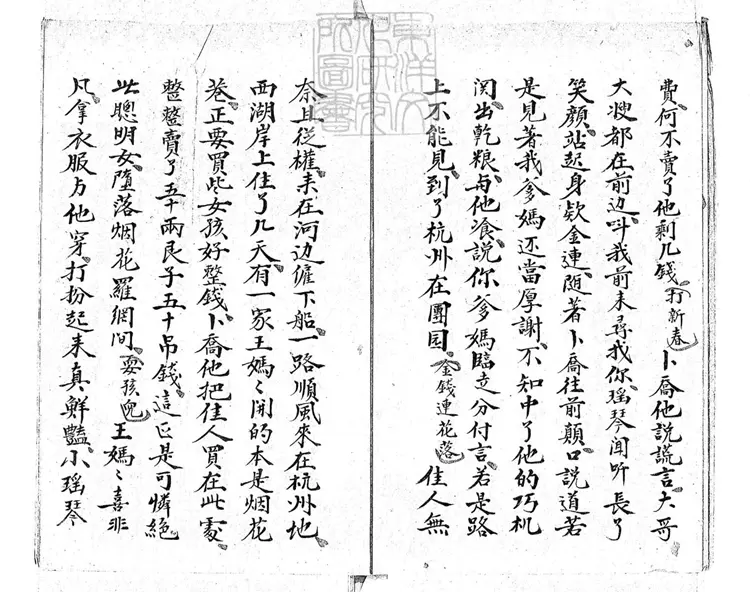 費何不賣了他剩几錢打新春卜喬他說謊言大哥
大嫂都在前边叫我前来尋我你瑶琴闻听長了
笑顏站起身欵金連随著卜喬往前顛口説道若
是見著我爹媽还當厚謝不知中了他的巧机
関出乾粮与他飡説你爹媽臨走分付言若是路
上不能見到了杭州在團园金錢連花落佳人無
奈且從權来在河边僱下船一路順風來在杭州地
西湖岸上住了几天有一家王媽〻開的本是烟花
巷正要買些女孩好整錢卜喬他把佳人買在此處
整整賣了五十兩艮子五十吊錢這正是可憐絕
此聰明女墮落烟花羅網间耍孩兒王媽〻喜非
凡拿衣服与他穿打扮起来真鮮豔小瑶琴
東洋文化研究所圖書